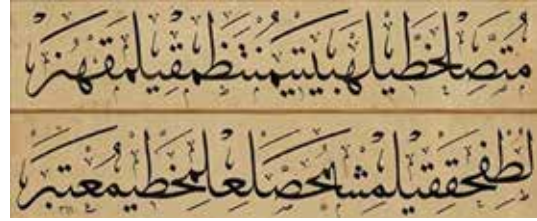 متصلخطيلهبيتيمنتظمقيلمقهنر
لطفحققيلمشمحصلعلمخطيمعتبر